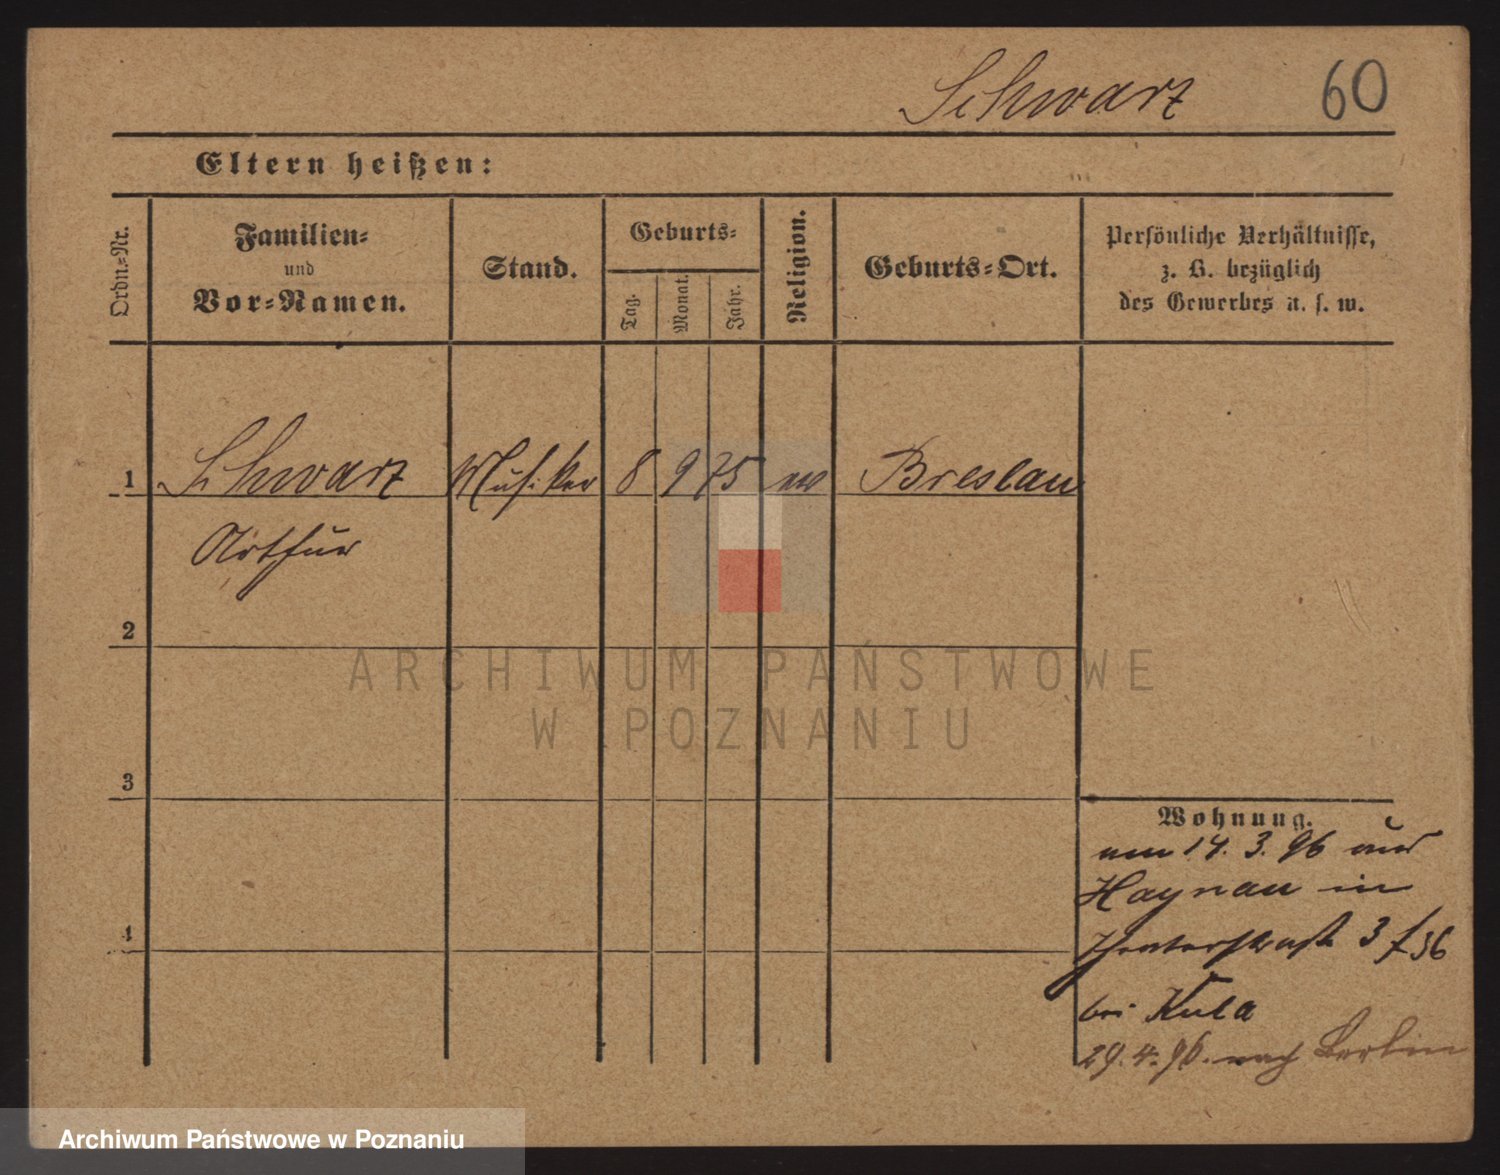 Schwarz 60
Eltern heißen:
Ordn.-Nr.
Familien-
und
Vor-Namen.
Stand.
Geburts-
Tag.
Monat.
Jahr.
Religion.
Geburts-Ort.
Persönliche Verhältnisse,
z. B. bezüglich
des Gewerbes u. s. w.
1 Schwarz Musiker 8 9 75 Breslau
Arthur
2
3
4
Wohnung.
am 14. 3. 96 aus
Haynau in
Theaterstraße 3
bei Kula
29. 4. 96. nach Berlin
ARCHIWUM PAŃSTWOWE
W POZNANIU
Archiwum Państwowe w Poznaniu